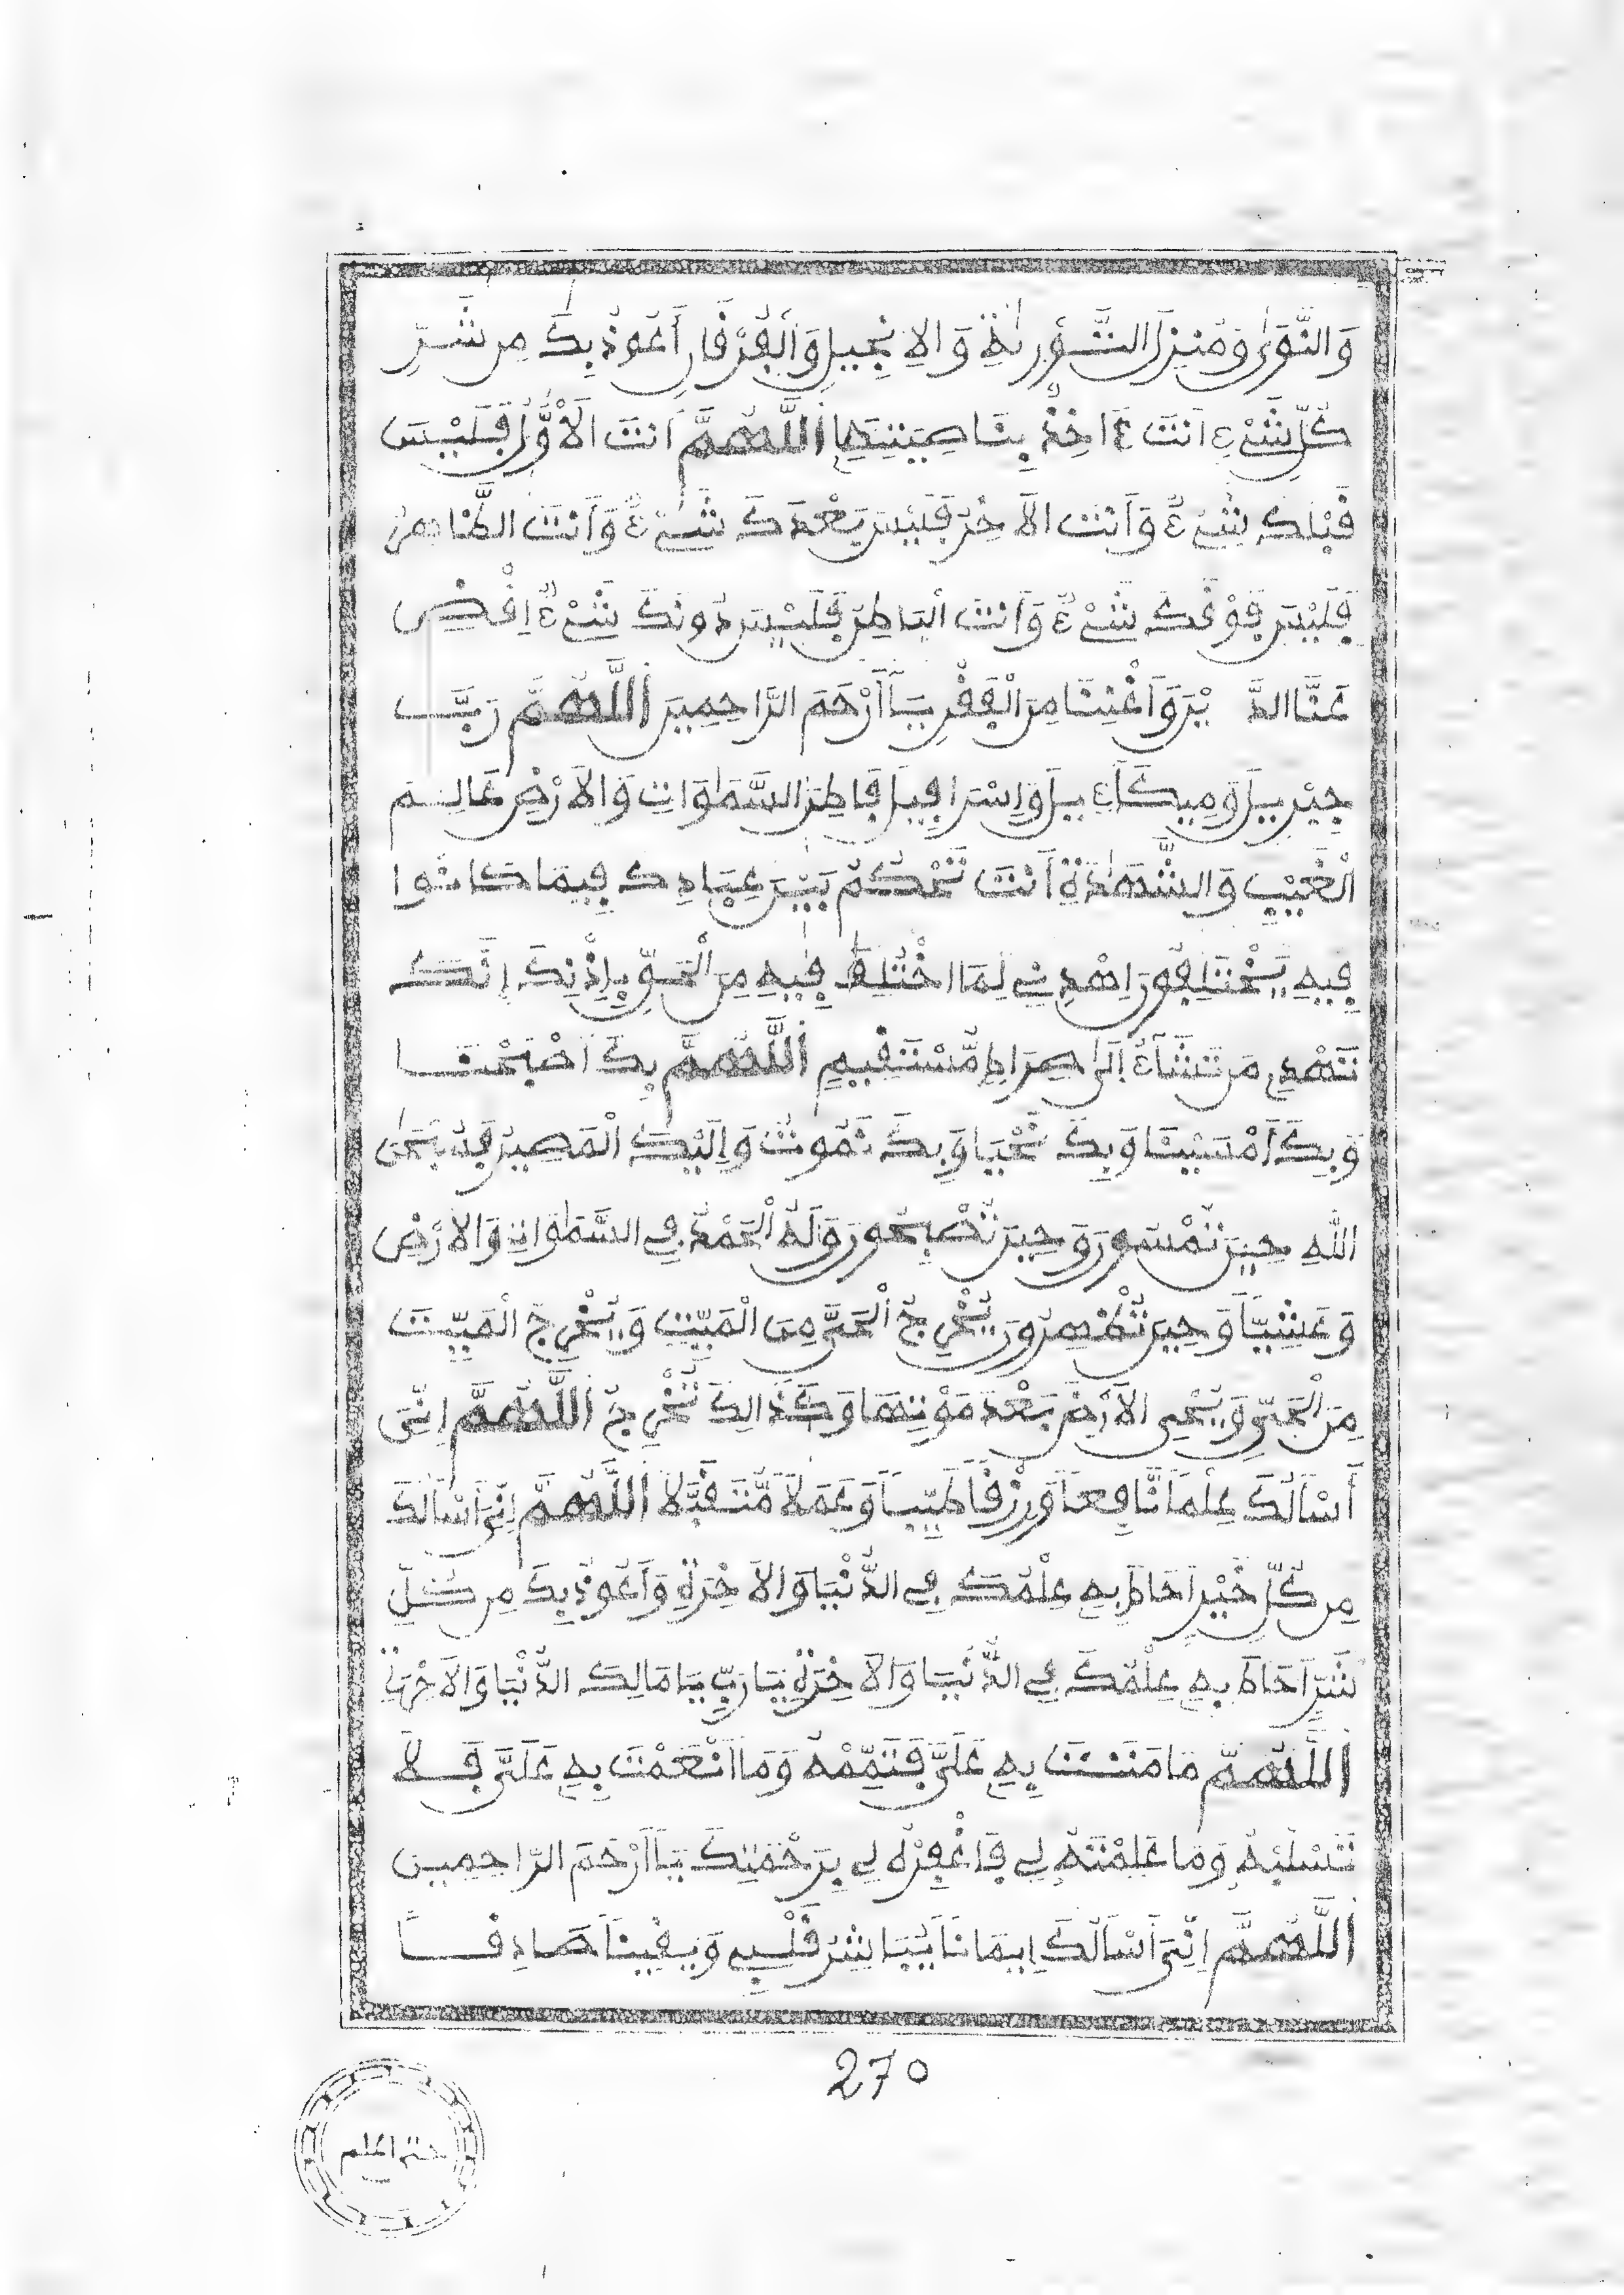 وَالنَّوَىٰ وَمُنزِلَ التَّوْرَىٰةِ وَالِانجِيلِ وَالْفُرْقَانِ أَعُوذُ بِكَ مِن شَرِّ
كُلِّ شَيْءٍ اَنتَ ءَاخِذٌ بِنَاصِيَتِهَا اَللَّهُمَّ اَنتَ الْأَوَّلُ فَلَيْسَ
قَبْلَكَ شَيْءٌ وَاَنتَ الَاخِرُ فَلَيْسَ بَعْدَكَ شَيْءٌ وَاَنتَ الظَّاهِرُ
فَلَيْسَ فَوْقَكَ شَيْءٌ وَاَنتَ الْبَاطِنُ فَلَيْسَ دُونَكَ شَيْءٌ اِقْضِ
عَنَّا الدَّيْنَ وَاَغْنِنَا مِنَ الْفَقْرِ يَآأَرْحَمَ الرَّاحِمِينَ اَللَّهُمَّ رَبَّ
جِبْرِيلَ وَمِيكَآءِيلَ وَإِسْرَافِيلَ فَاطِرَ السَّمَٰوَاتِ وَالَارْضِ عَالِمَ
الْغَيْبِ وَالشَّهَٰدَةِ أَنتَ تَحْكُمُ بَيْنَ عِبَادِكَ فِيمَا كَانُوا
فِيهِ يَخْتَلِفُونَ اِهْدِنِي لِمَا اخْتُلِفَ فِيهِ مِنَ الْحَقِّ بِإِذْنِكَ إِنَّكَ
تَهْدِي مَن تَشَآءُ إِلَىٰ صِرَاطٍ مُّسْتَقِيمٍ اَللَّهُمَّ بِكَ أَصْبَحْنَا
وَبِكَ أَمْسَيْنَا وَبِكَ نَحْيَا وَبِكَ نَمُوتُ وَإِلَيْكَ الْمَصِيرُ فَسُبْحَٰنَ
اللَّهِ حِينَ تُمْسُونَ وَحِينَ تُصْبِحُونَ وَلَهُ الْحَمْدُ فِي السَّمَٰوَاتِ وَالَارْضِ
وَعَشِيّاً وَحِينَ تُظْهِرُونَ يُخْرِجُ الْحَيَّ مِنَ الْمَيِّتِ وَيُخْرِجُ الْمَيِّتَ
مِنَ الْحَيِّ وَيُحْيِي الَارْضَ بَعْدَ مَوْتِهَا وَكَذَالِكَ تُخْرَجُونَ اَللَّهُمَّ إِنِّي
أَسْأَلُكَ عِلْماً نَّافِعاً وَرِزْقاً طَيِّباً وَعَمَلاً مُّتَقَبَّلاً اَللَّهُمَّ إِنِّي أَسْأَلُكَ
مِن كُلِّ خَيْرٍ اَحَاطَ بِهِ عِلْمُكَ فِي الدُّنْيَا وَالَاخِرَةِ وَأَعُوذُ بِكَ مِن كُلِّ
شَرٍّ اَحَاطَ بِهِ عِلْمُكَ فِي الدُّنْيَا وَالَاخِرَةِ يَا رَبِّ يَا مَالِكَ الدُّنْيَا وَالَاخِرَةِ
اَللَّهُمَّ مَا مَنَنتَ بِهِ عَلَيَّ فَتَمِّمْهُ وَمَا أَنْعَمْتَ بِهِ عَلَيَّ فَلَا
تَسْلُبْهُ وَمَا عَلِمْتَهُ لِي فَاغْفِرْهُ لِي بِرَحْمَتِكَ يَا أَرْحَمَ الرَّاحِمِينَ
اَللَّهُمَّ إِنِّي أَسْأَلُكَ إِيمَاناً يُبَاشِرُ قَلْبِي وَيَقِيناً صَادِقاً
270